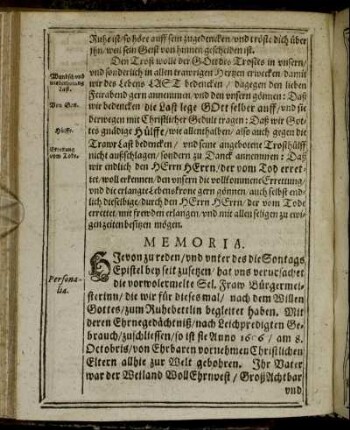 Ruhe ist / so höre auff sein zugedencken / und tröste dich über
jhn / weil sein Geist von hinnen gescheiden ist.
Den Trost wolle der GOtt des Trostes in unsern /
und sonderlich in allen trawrigen Hertzen erwecken / damit
wir des Lebens LAST bedencken / dagegen den lieben
Feirabend gern annemmen, und den unsern gönnen: Daß
Von Gott.
wir bedencken die Last lege GOtt selber auff / und sie
derwegen mit Christlicher Gedult tragen: Daß wir Got-
Hülffe.
tes gnädige Hülffe / wie allenthalben / also auch gegen die
Trawr Last bedencken / und seine angebotene Trosthülff
nicht außschlagen / sondern zu Danck annemmen: Daß
Errettung
vom Tode.
wir endlich den HErrn HErrn / der vom Tod erret-
tet, woll erkennen, den unsern die vollkommene Errettung /
und die erlangte Lebenskrone gern gönnen / auch selbst end-
lich dieselbige / durch den HErrn HErrn / der vom Tode
errettet, mit frewden erlangen, und mit allen seligen zu ewi-
gen zeiten besitzen mögen.
MEMORIA.
Persona-
lia.
HIevon zu reden / und unter des die Sontags
Epistel bey seit zusetzen / hat uns verursachet
die vorwolermelte Sel. Fraw Bürgermei-
sterinn / die wir für dieses mal / nach dem Willen
Gottes / zum Ruhebettlin begleitet haben. Mit
deren Ehrnegedächtniß / nach Leichpredigten Ge-
brauch / zuschliessen / so ist sie Anno 1606 / am 8.
Octobris / von Ehrbaren vornehmen Christlichen
Eltern allhie zur Welt gebohren. Ihr Vater
war der Weiland WollEhrnvest / Großachtbar
und